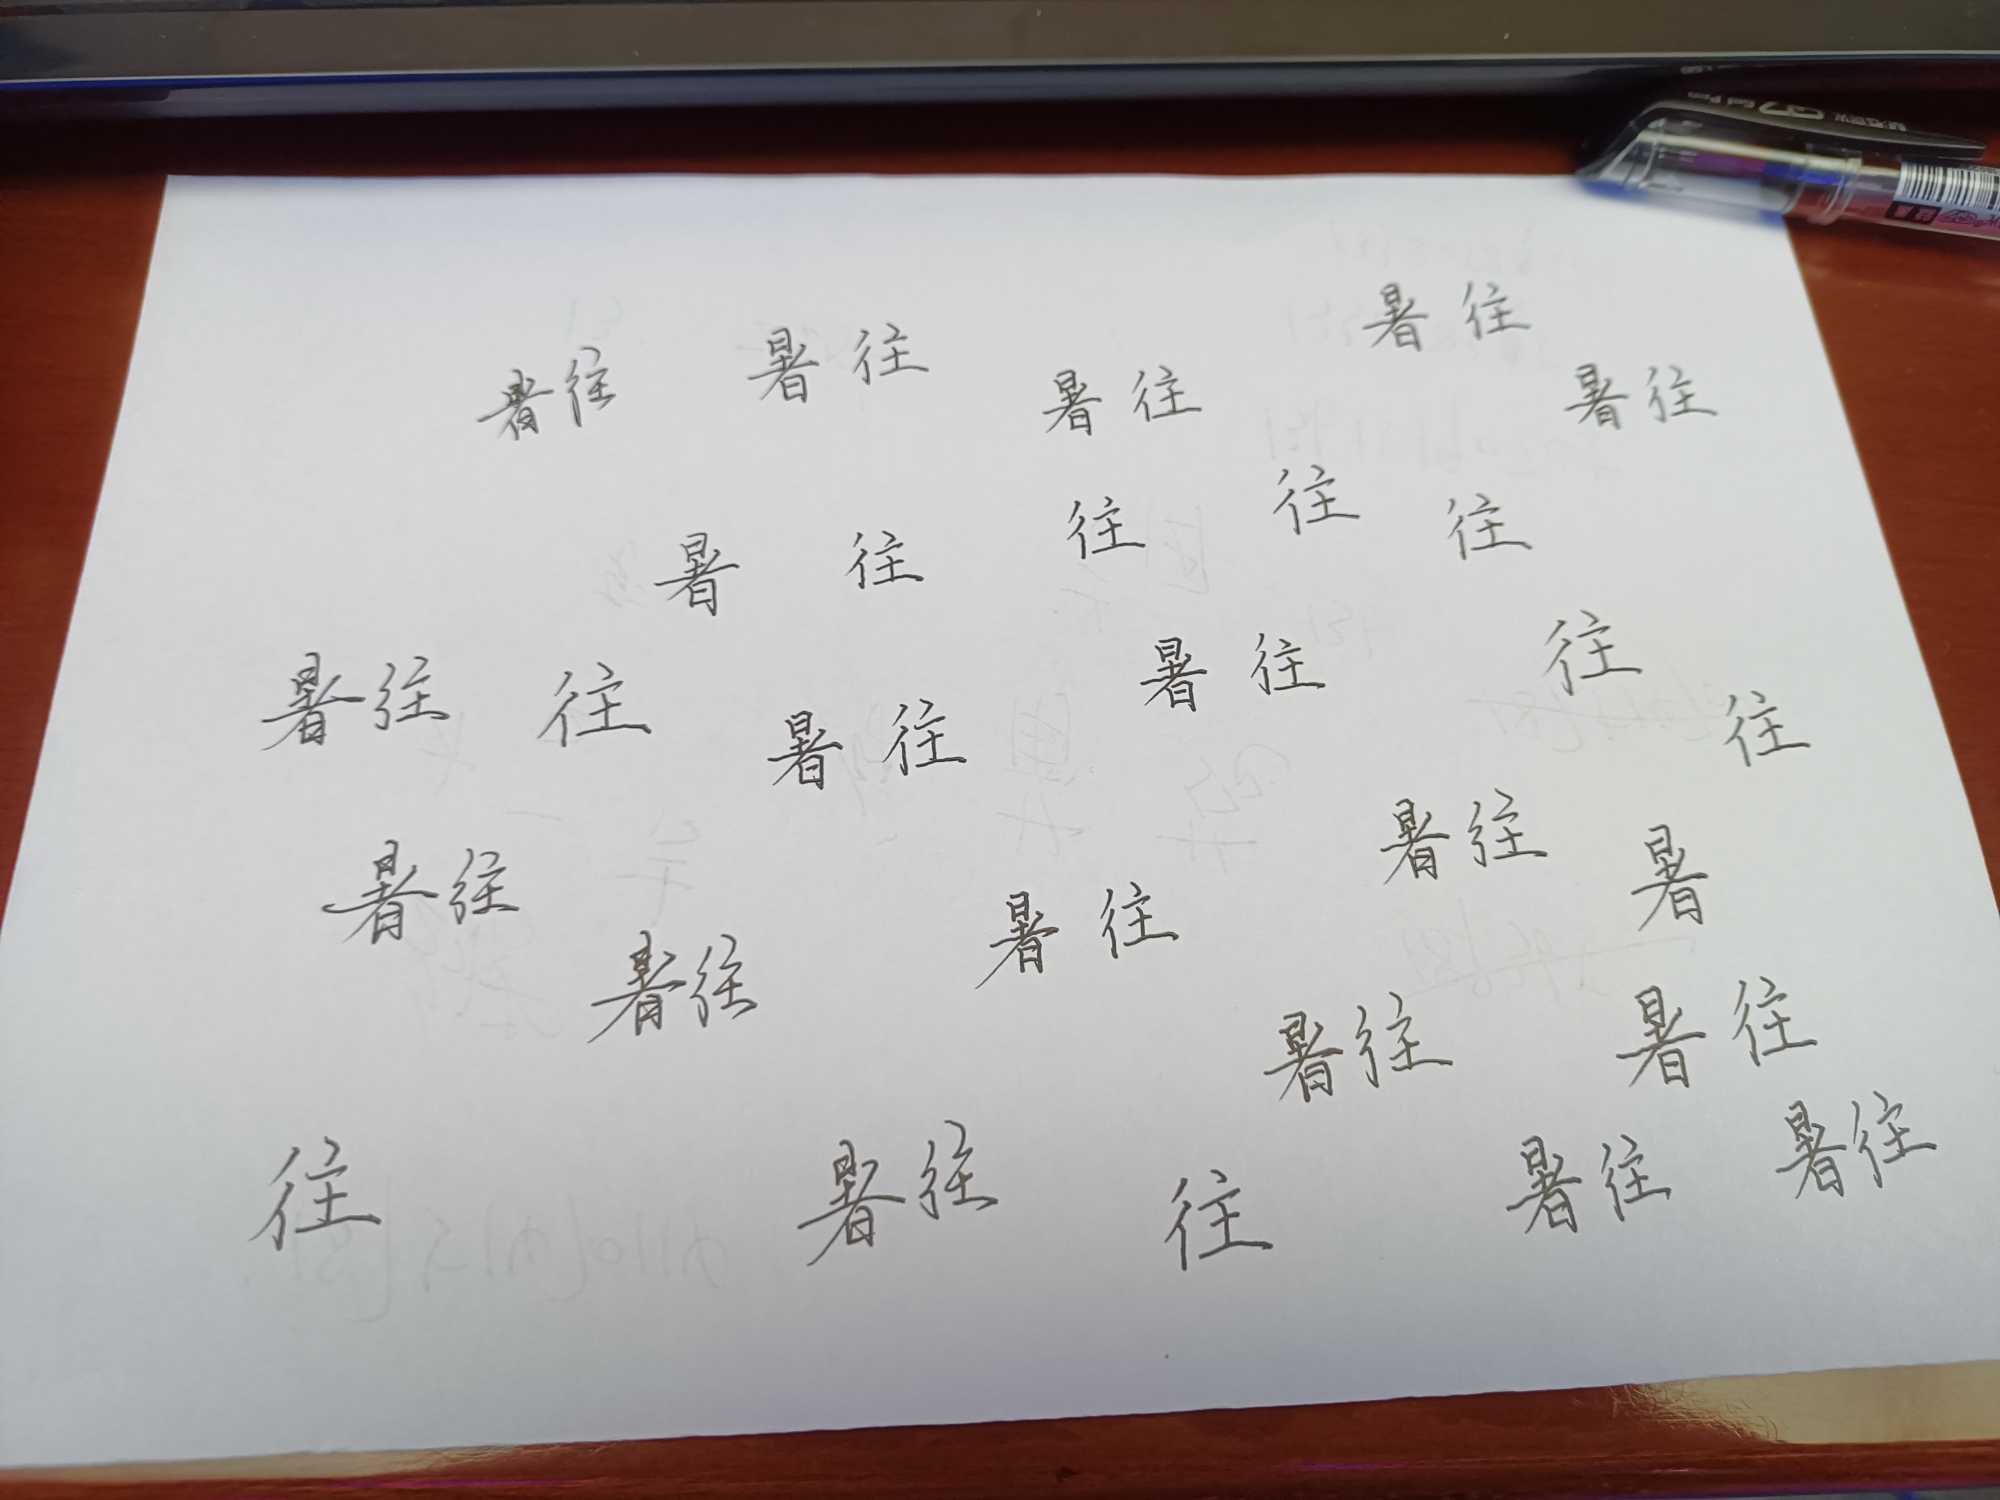 暑往
暑往
暑往
暑往
暑往
暑 往
往
往
往
暑往
往
暑往
暑往
往
往
暑往
暑往
暑往
暑往
暑
暑往
暑往
往
暑往
往
暑往
暑往